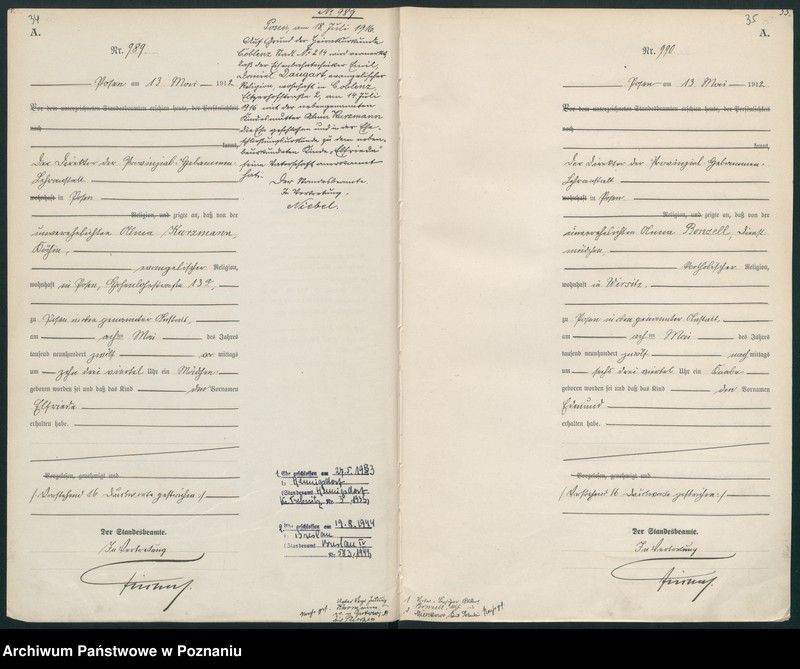 34
A.
Nr. 989
Posen am 13 Mai 1912
Vor dem unterzeichneten Standesbeamten erschien heute, der Persönlichkeit
nach
kannt,
Der Direktor der Provinzial-Hebammen-
Lehranstalt
wohnhaft in Posen
Religion, und zeigte an, daß von der
unverehelichten Alma Kurzmann,
Köchin,
evangelischer Religion,
wohnhaft in Posen, Hohenlohestraße 13a,
zu Posen in der genannten Anstalt,
am achten Mai des Jahres
tausend neunhundert zwölf vormittags
um zehn drei viertel Uhr ein Mädchen
geboren worden sei und daß das Kind den Vornamen
Elfriede
erhalten habe.
Vorgelesen, genehmigt und
(Vorstehend 16 Druckworte gestrichen.)
Der Standesbeamte.
In Vertretung
Nr 989
Posen, am 18 Juli 1916.
Auf Grund der Heiratsurkunde
Coblenz Stadt Nr 214 wird vermerkt,
daß der Eisenbahntechniker Emil,
Daniel Daugart, evangelischer
Religion, wohnhaft in Coblenz,
2, am 14 Juli
1916 mit der nebengenannten
Kindesmutter Alma Kurzmann
die Ehe geschlossen und in der Ehe-
schließungsurkunde zu dem neben-
beurkundeten Kinde "Elfriede"
seine Vaterschaft anerkannt
hat.
Der Standesbeamte.
In Vertretung.
Niebel.
1. Ehe geschlossen am 27.5.1933
in Hennigsdorf
(Standesamt Hennigsdorf
Kr. Trebnitz Nr. 3/1933)
2. Ehe geschlossen am 19.8.1944
in Breslau
(Standesamt Breslau IV
Nr. 583/1944)
35
A.
Nr. 990
Posen am 13 Mai 1912
Vor dem unterzeichneten Standesbeamten erschien heute, der Persönlichkeit
nach
kannt,
Der Direktor der Provinzial-Hebammen-
Lehranstalt
wohnhaft in Posen
Religion, und zeigte an, daß von der
unverehelichten Anna Bonzell, Dienst
mädchen,
katholischer Religion,
wohnhaft in Wersitz,
zu Posen in der genannten Anstalt,
am achten Mai des Jahres
tausend neunhundert zwölf nachmittags
um sechs drei viertel Uhr ein Knabe
geboren worden sei und daß das Kind den Vornamen
Edmund
erhalten habe.
Vorgelesen, genehmigt und
(Vorstehend 16 Druckworte gestrichen.)
Der Standesbeamte.
In Vertretung
Archiwum Państwowe w Poznaniu